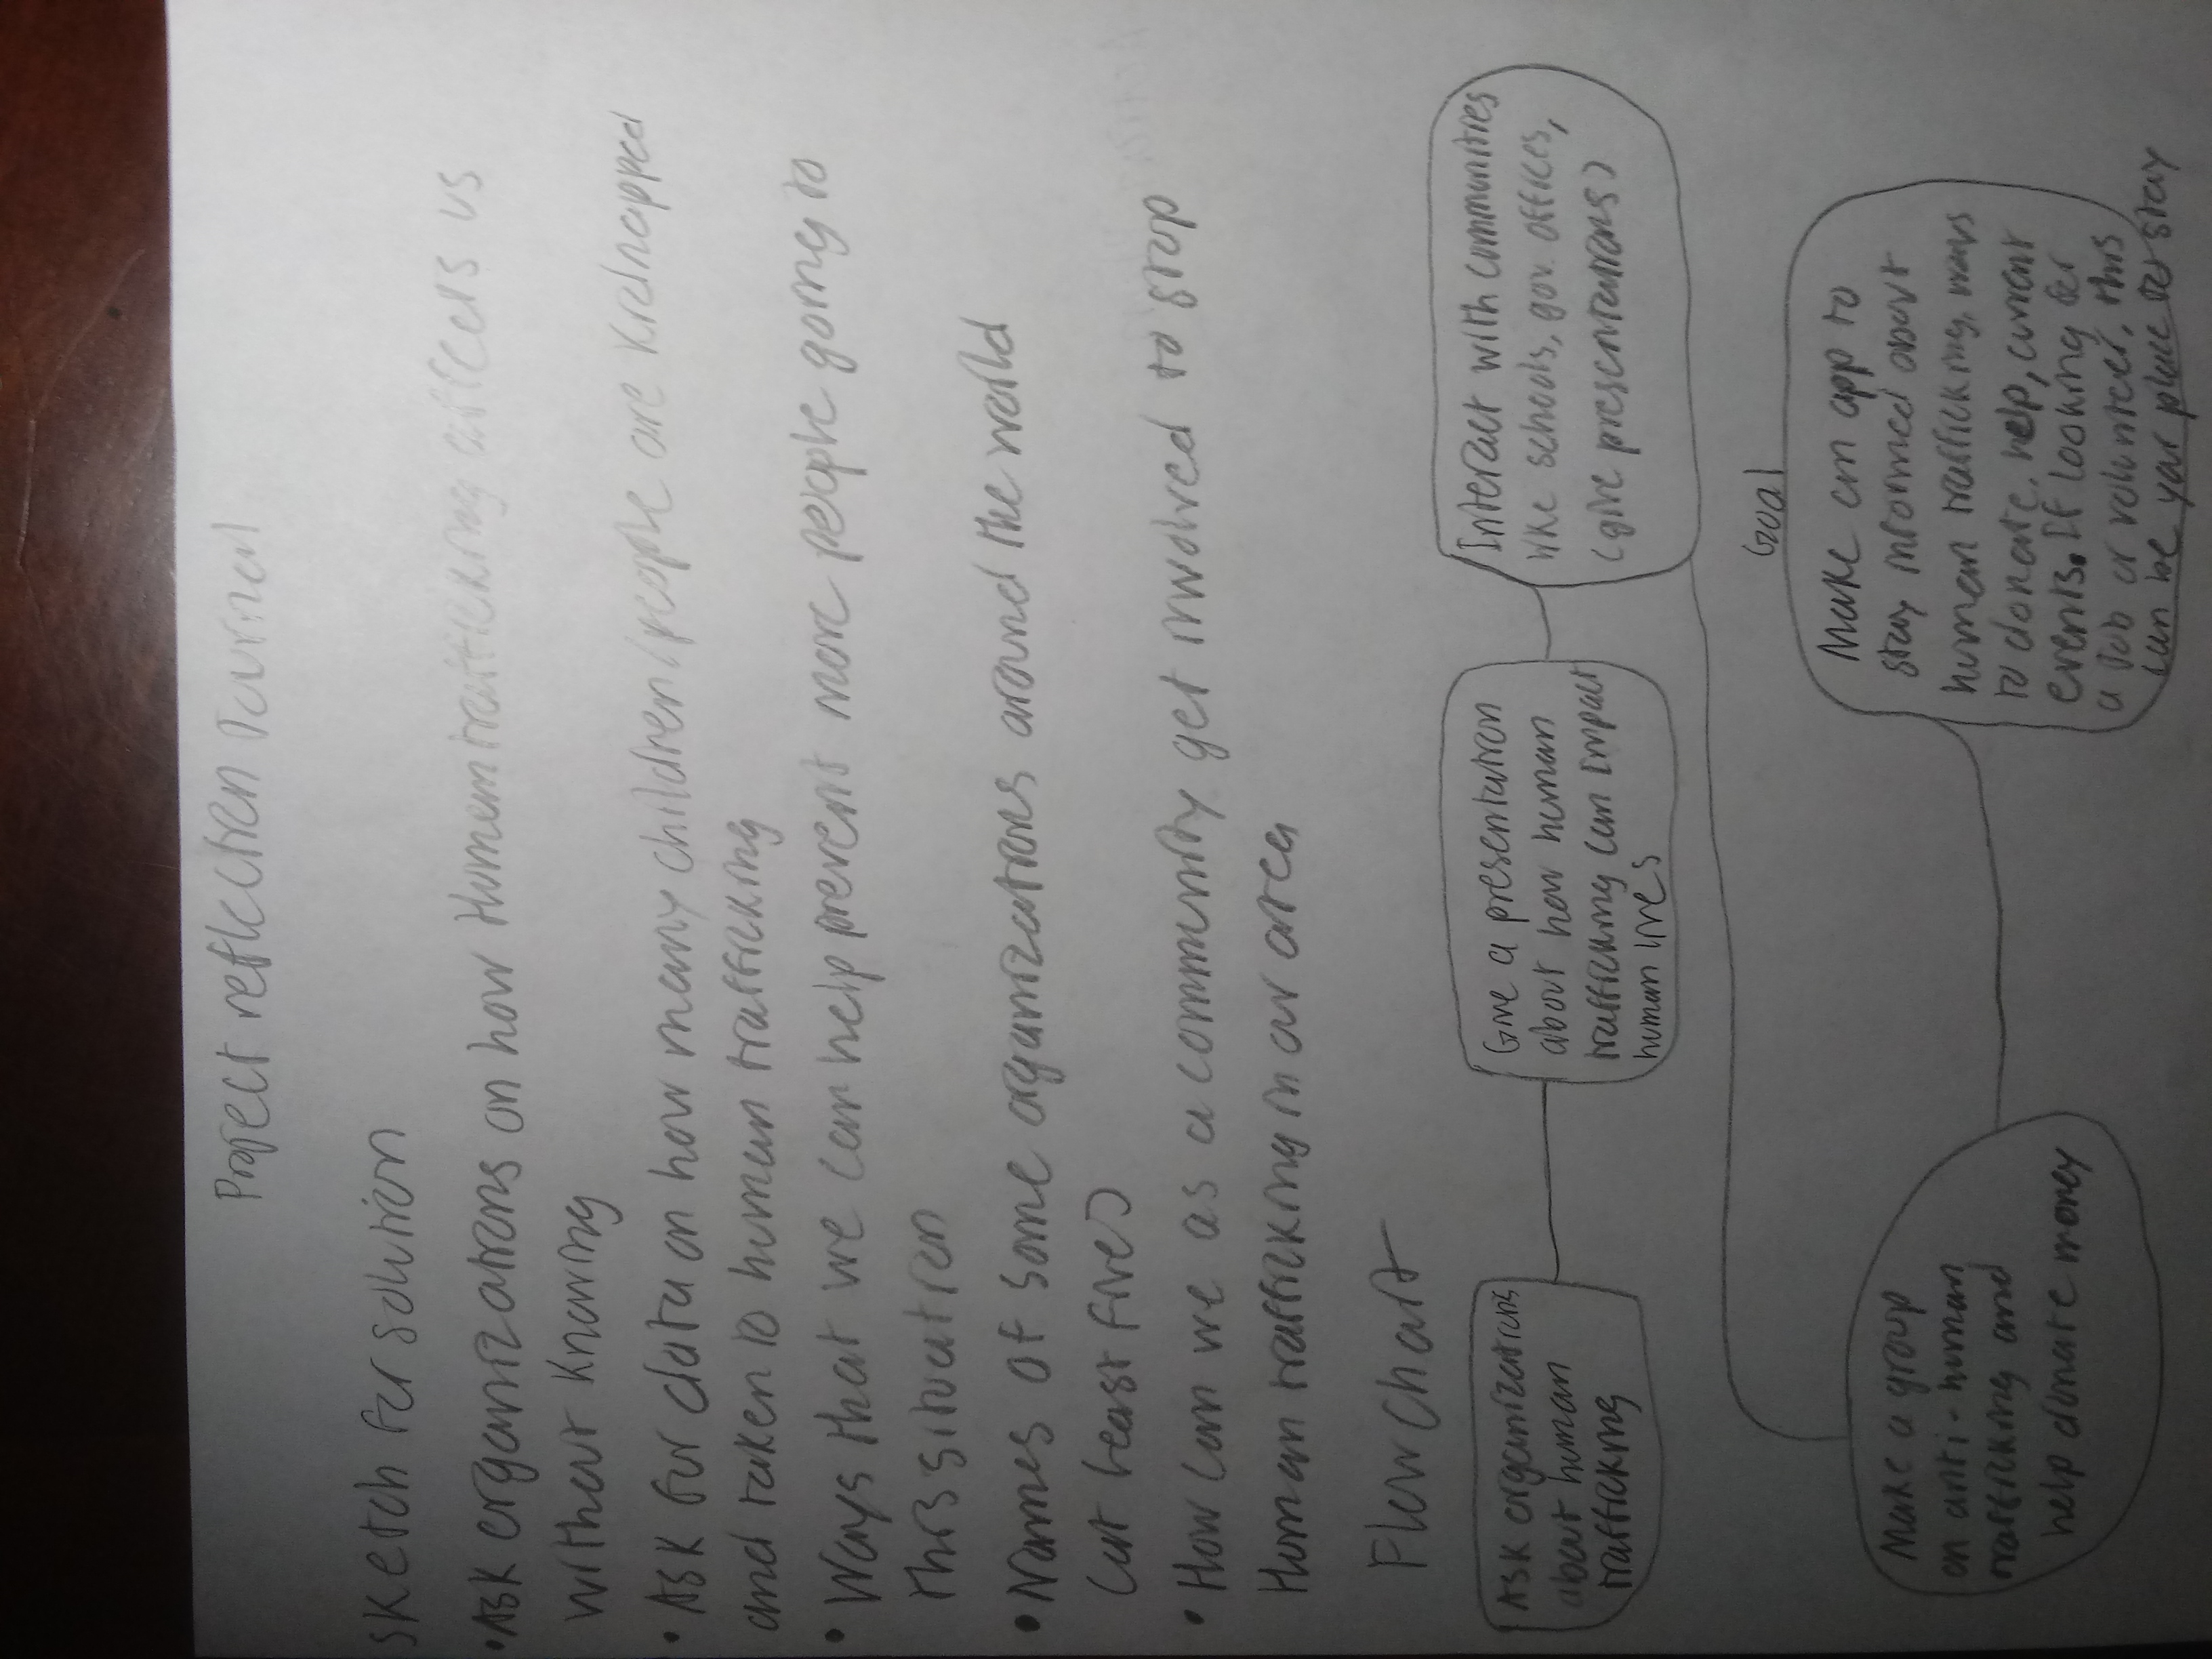 Project reflection Journal
Sketch for solution
• Ask organizations on how Human trafficking affects us
without knowing
• Ask for data on how many children/people are kidnapped
and taken to human trafficking
• Ways that we can help prevent more people going to
this situation
• Names of some organizations around the world
(at least five)
• How can we as a community get involved to stop
Human trafficking in our area
Flow Chart
Ask organizations
about human
trafficking
Give a presentation
about how human
trafficking can impact
human lives
Interact with communities
like schools, gov. offices,
(give presentations)
Make a group
on anti-human
trafficking and
help donate money
Goal
Make an app to
stay informed about
human trafficking, ways
to donate, help, current
events. If looking for
a Job or volunteer, this
can be your place to stay